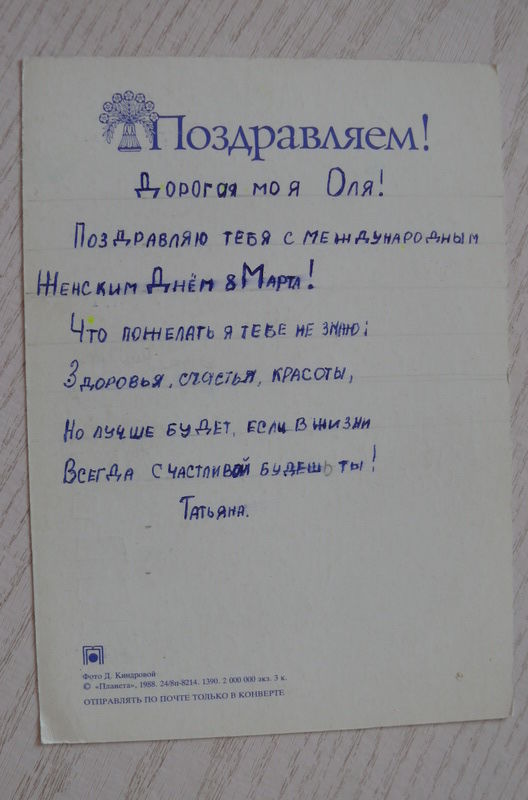 Поздравляем!
Дорогая моя Оля!
Поздравляю тебя с международным
Женским Днём 8 Марта!
Что пожелать я тебе не знаю:
Здоровья, счастья, красоты,
Но лучше будет, если в жизни
Всегда счастливой будешь ты!
Татьяна.
Фото Д. Киндровой
© «Планета», 1988. 24/8п-8214. 1390. 2 000 000 экз. 3 к.
ОТПРАВЛЯТЬ ПО ПОЧТЕ ТОЛЬКО В КОНВЕРТЕ